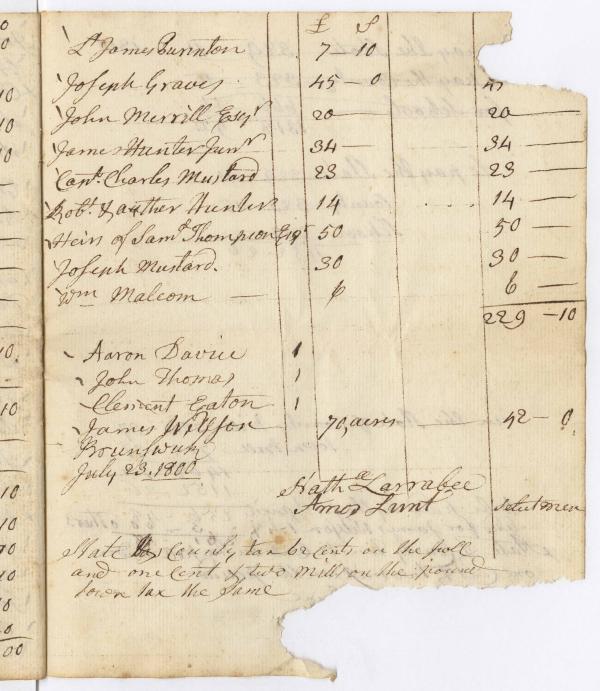 £ S
Lt James Purinton 7 — 10
Joseph Graves 45 — 0 45
John Merrill Esqr 20 — 20 —
James Hunter Junr 34 — 34 —
Capt. Charles Mustard 23 23 —
Robt. & Arther Hunter 14 14 —
Heirs of Saml Thompson Esqr 50 50 —
Joseph Mustard. 30 30 —
Wm Malcom — 6 6 —
229 — 10
Aaron Davice 1
John Thomas 1
Clement Eaton 1
James Willson 70, acres 42 — 0
Brunswick
July 23. 1800
Nathll Larrabee
Amos Lunt Selectmen
State County tax 62 cents on the poll
and one Cent & two Mills on the pound
town tax the Same